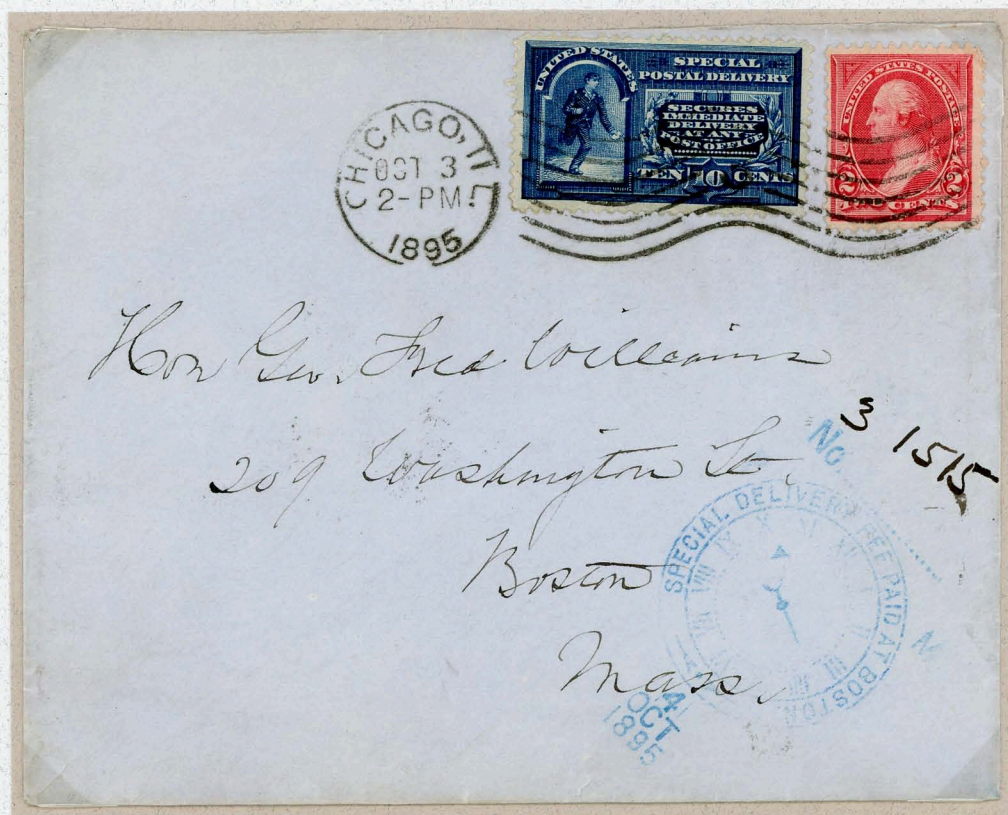 CHICAGO, ILL.
OCT 3
2-PM
1895
UNITED STATES
SPECIAL
POSTAL DELIVERY
SECURES
IMMEDIATE
DELIVERY
AT ANY
POST OFFICE
TEN 10 CENTS
UNITED STATES POSTAGE
2 2
TWO CENTS
Hon Geo. Fred Williams
209 Washington St.
Boston
Mass.
No. 3 1515
SPECIAL DELIVERY FEE PAID AT BOSTON
4
OCT
1895